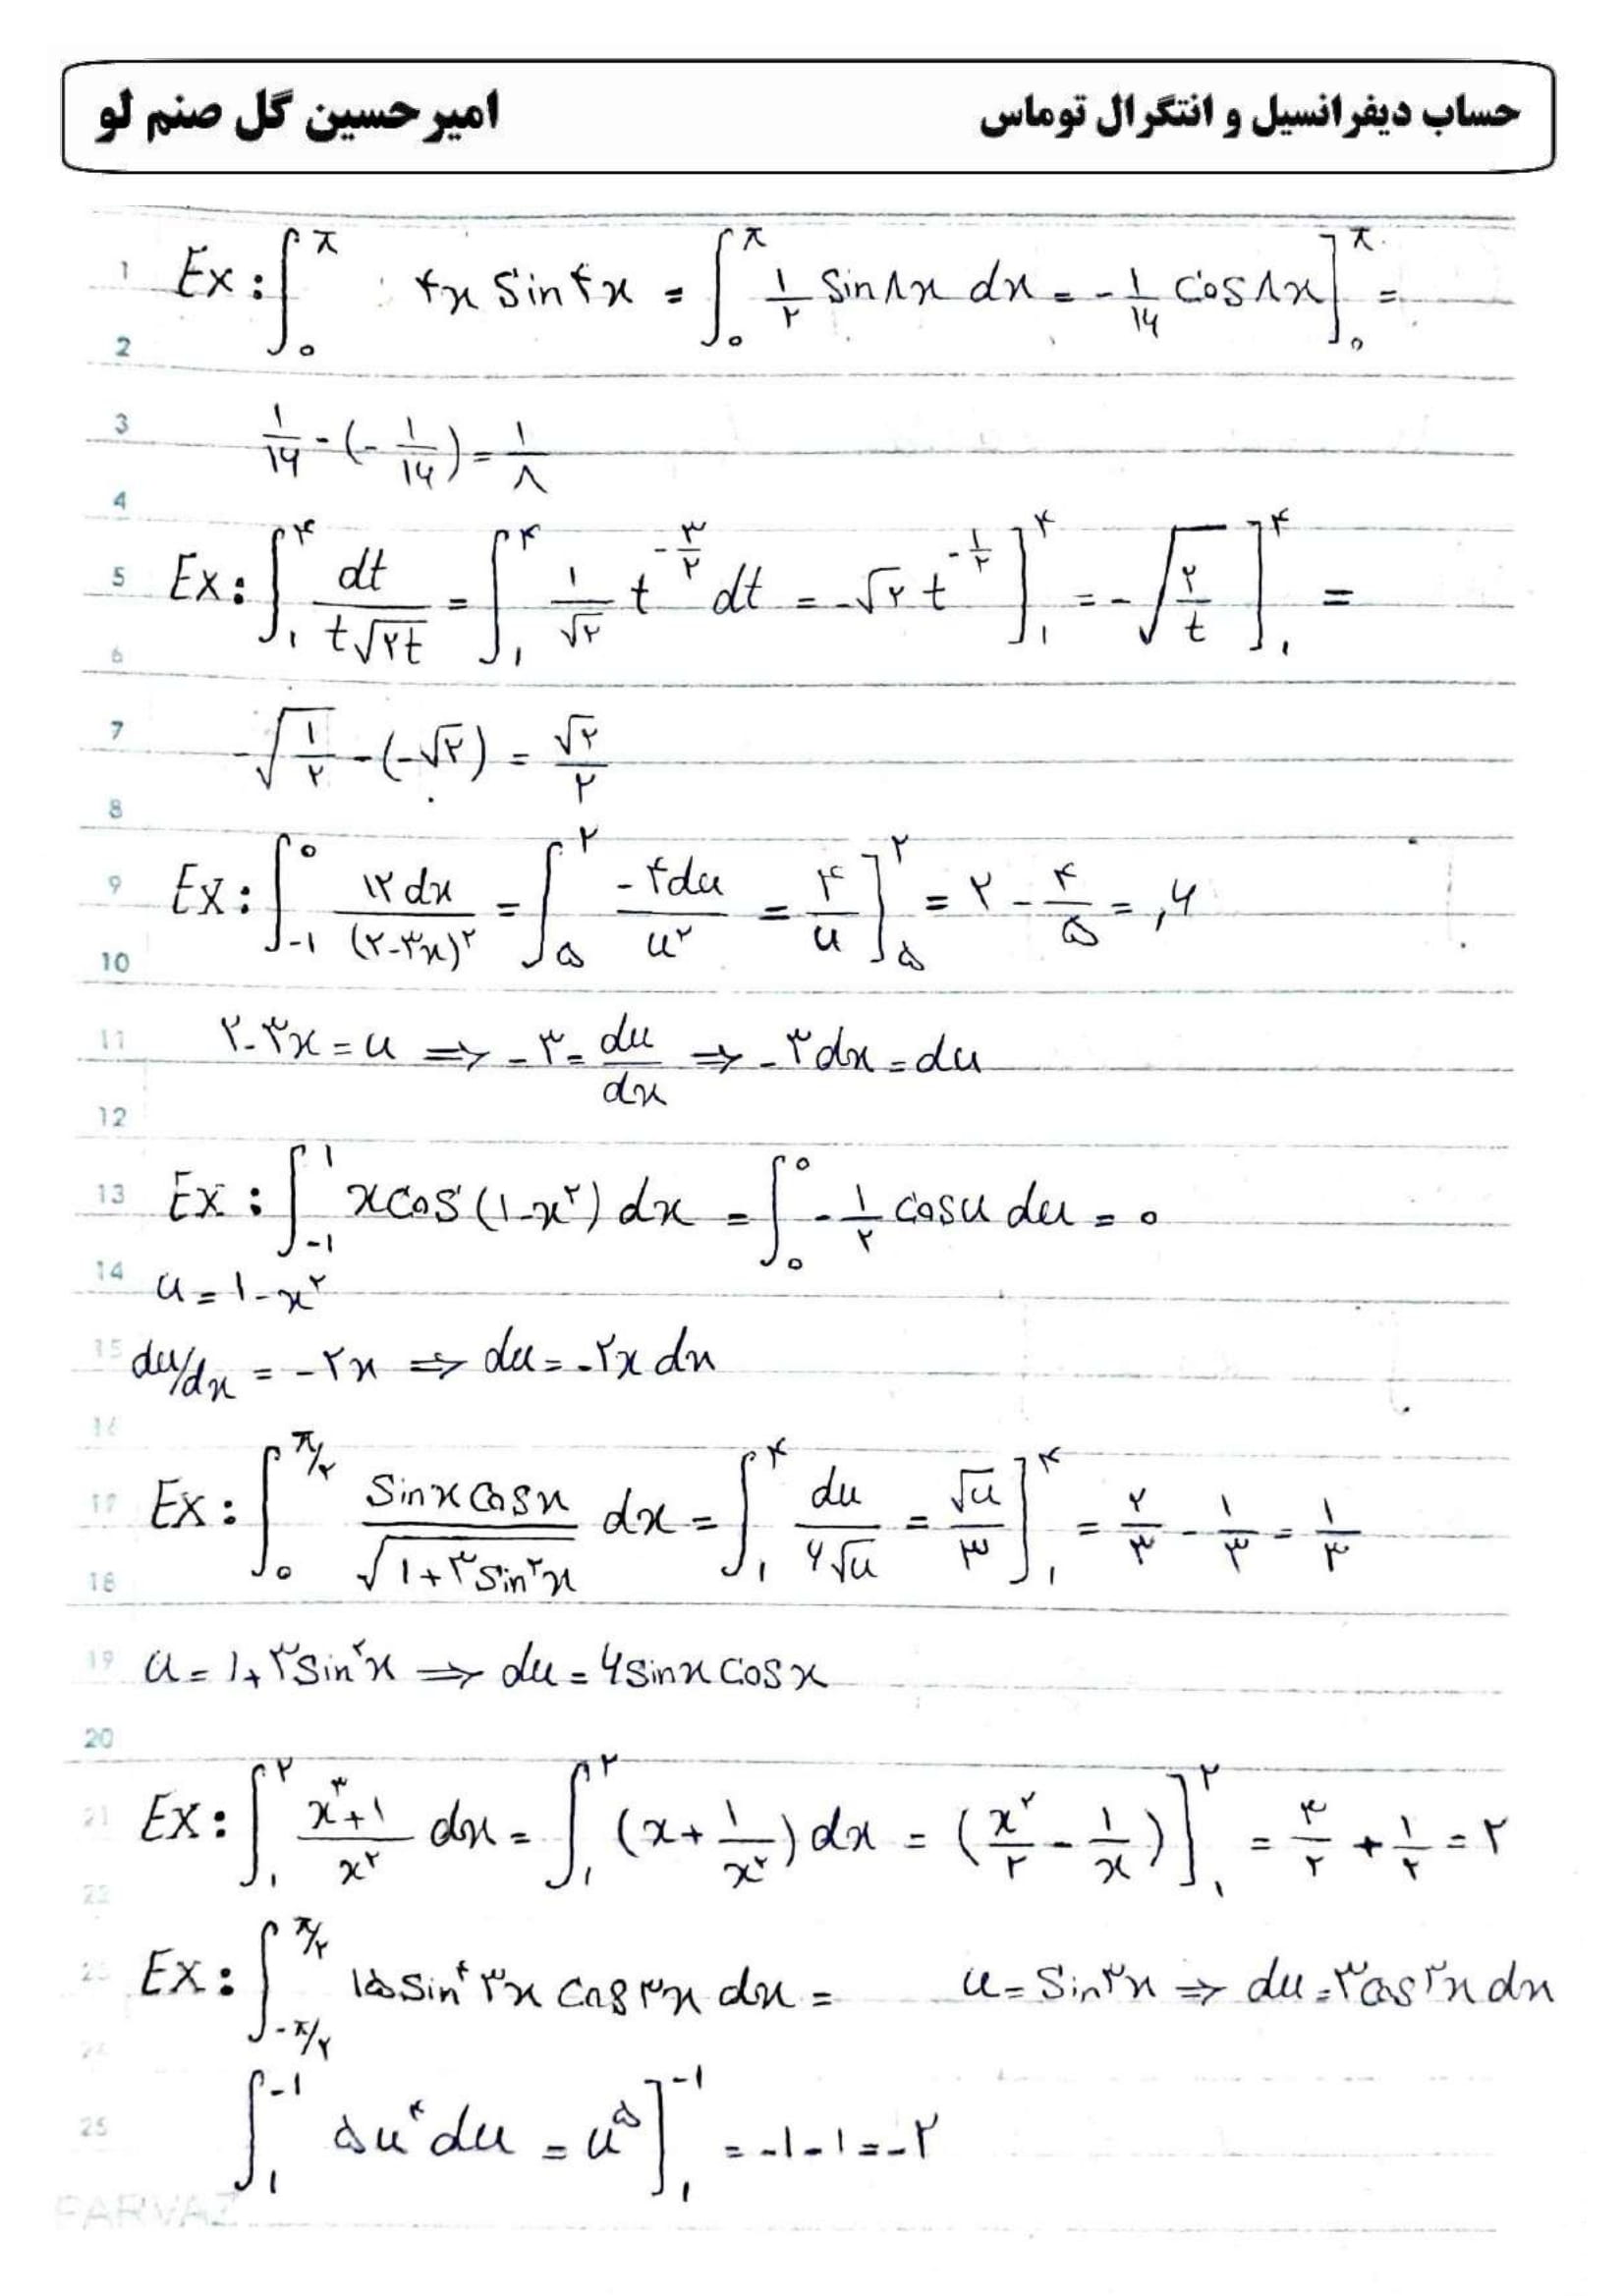 حساب دیفرانسیل و انتگرال توماس امیرحسین گل صنم لو
1 Ex: ∫₀^π ۴x sin۴x = ∫₀^π ۱/۲ sin۸x dx = -۱/۱۶ cos۸x]₀^π =
2
3 ۱/۱۶ - (-۱/۱۶) = ۱/۸
4
5 Ex: ∫₁^۴ dt/(t√۲t) = ∫₁^۴ ۱/√۲ t^(-۳/۲) dt = -√۲ t^(-۱/۲)]₁^۴ = -√(۲/t)]₁^۴ =
6
7 -√(۱/۲) - (-√۲) = √۲/۲
8
9 Ex: ∫₋₁^۰ ۱۲dx/(۲-۳x)^۲ = ∫_۵^۲ -۴du/u^۲ = ۴/u]_۵^۲ = ۲ - ۴/۵ = ,۶
10
11 ۲-۳x = u ⇒ -۳ = du/dx ⇒ -۳dx = du
12
13 Ex: ∫₋₁^۱ xcos(۱-x^۲) dx = ∫₀^۰ -۱/۲ cosu du = ۰
14 u = ۱-x^۲
15 du/dx = -۲x ⇒ du = -۲x dx
16
17 Ex: ∫₀^(π/۲) sinx cosx/√(۱+۳sin^۲x) dx = ∫₁^۴ du/(۶√u) = √u/۳]₁^۴ = ۲/۳ - ۱/۳ = ۱/۳
18
19 u = ۱+۳sin^۲x ⇒ du = ۶sinx cosx
20
21 Ex: ∫₁^۲ (x^۳+۱)/x^۲ dx = ∫₁^۲ (x + ۱/x^۲) dx = (x^۲/۲ - ۱/x)]₁^۲ = ۳/۲ + ۱/۲ = ۲
22
23 Ex: ∫_(-π/۲)^(π/۲) ۱۵sin^۴ ۳x cos۳x dx = u = sin۳x ⇒ du = ۳cos۳x dx
24
25 ∫₁^(-۱) ۵u^۴ du = u^۵]₁^(-۱) = -۱-۱ = -۲
PARVAZ